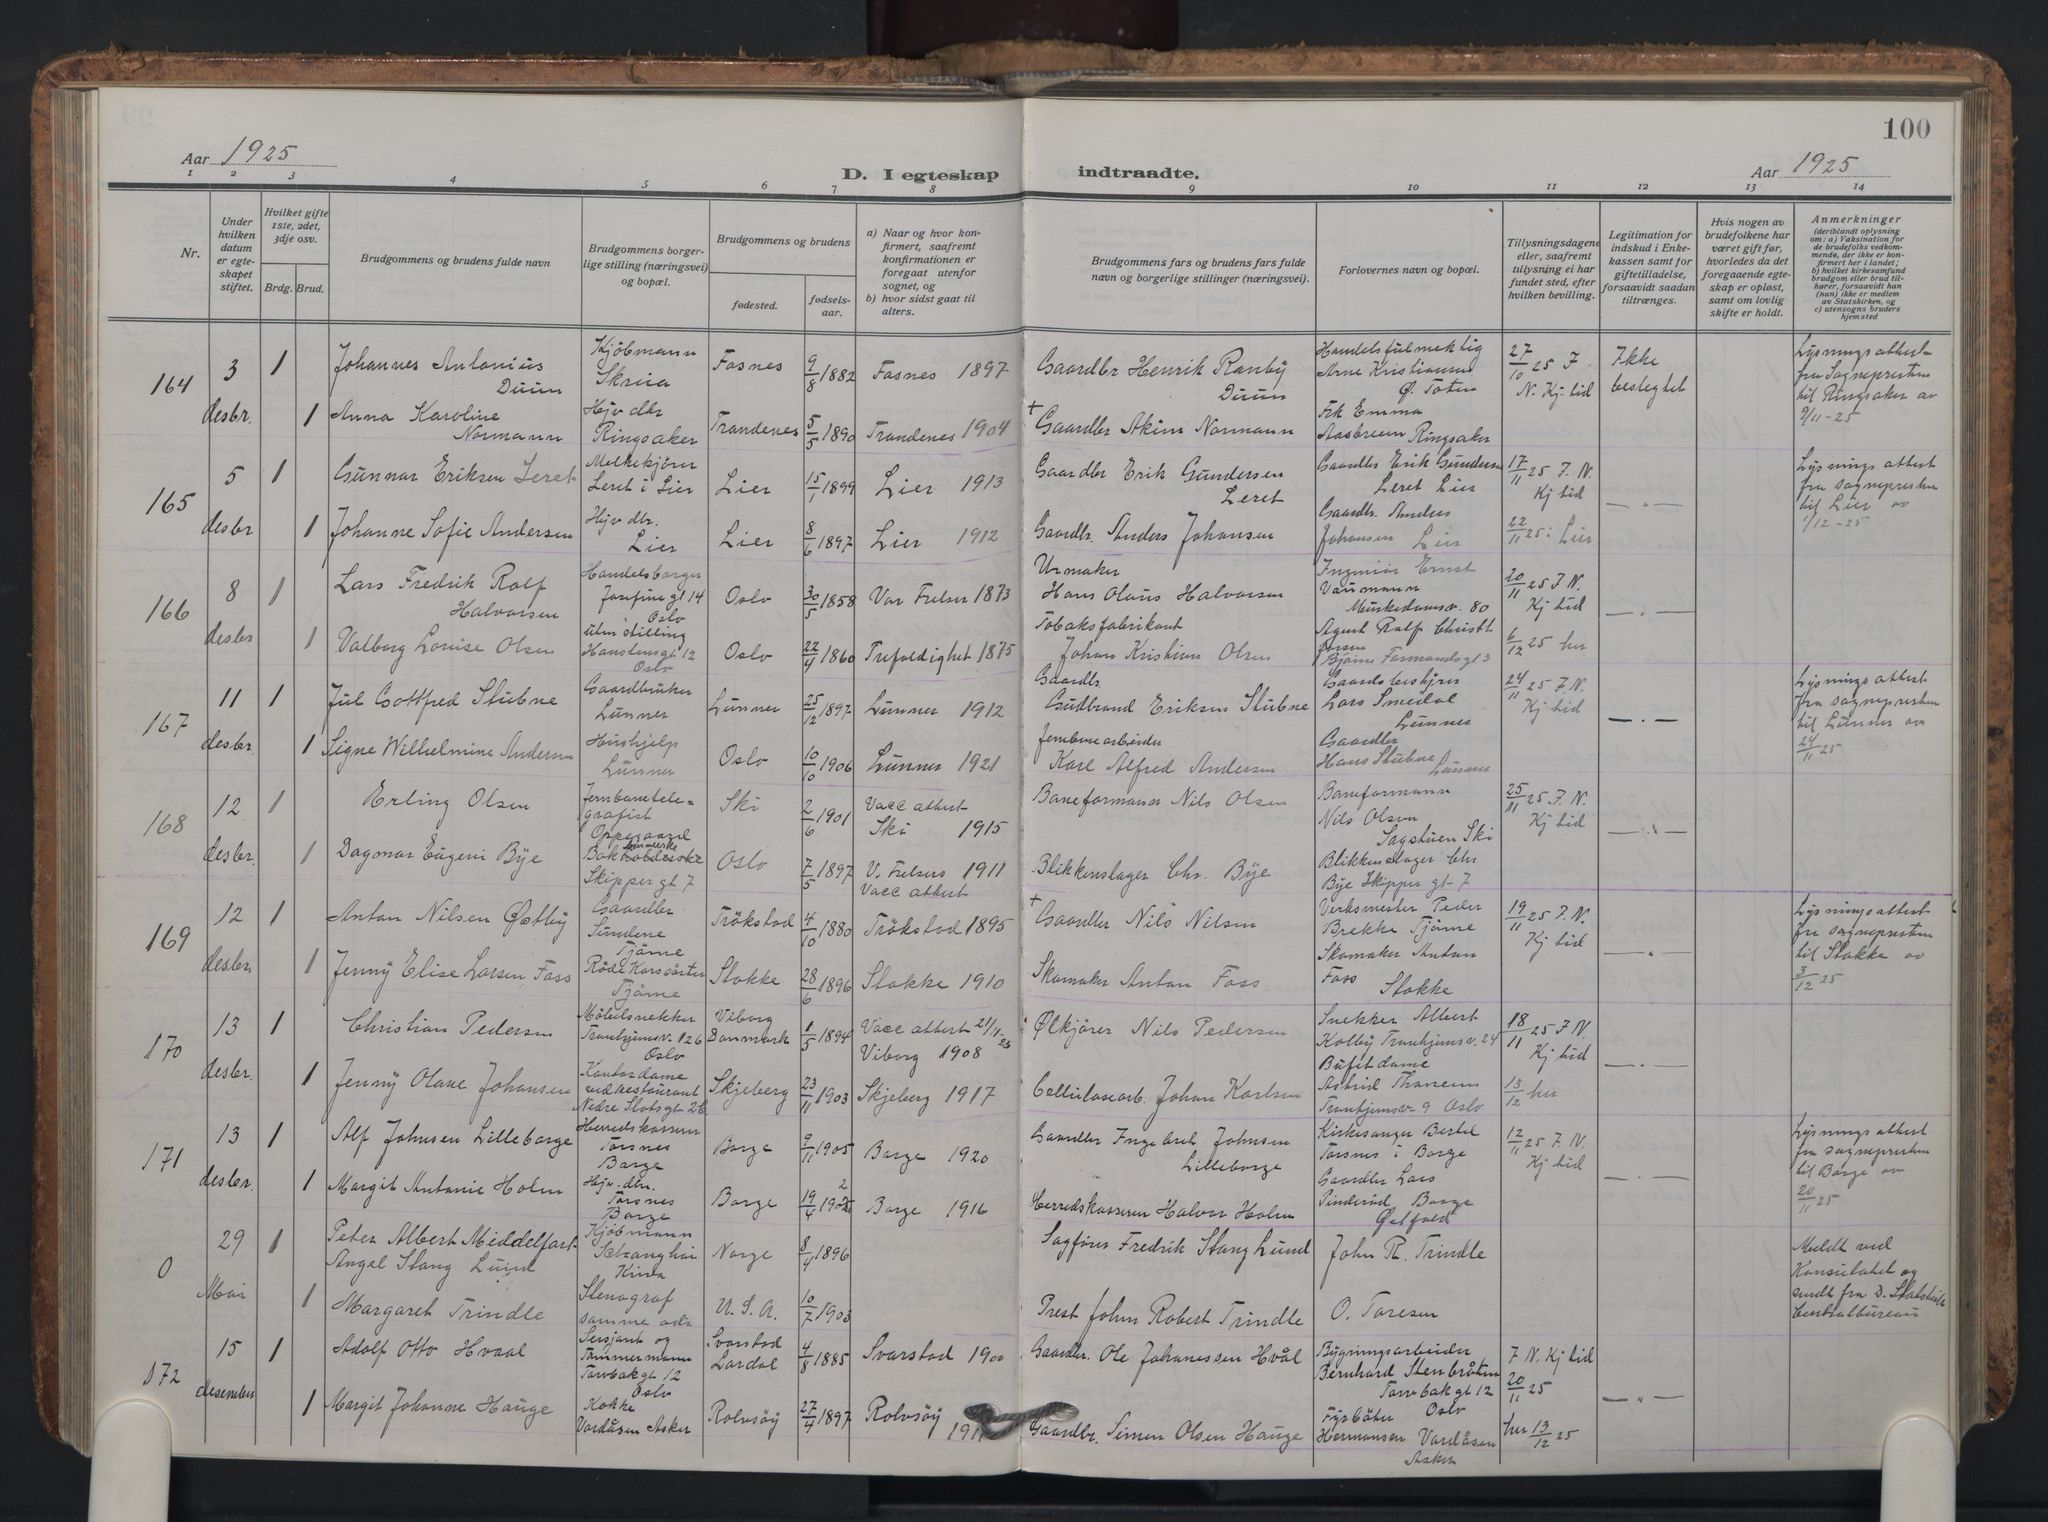 100
Aar 1925
D. I egteskap indtraadte.
Aar 1925
1 2 3 4 5 6 7 8 9 10 11 12 13 14
Nr.
Under hvilken datum er egteskapet stiftet.
Hvilket gifte 1ste, 2det, 3dje osv.
Brdg. Brud.
Brudgommens og brudens fulde navn
Brudgommens borgerlige stilling (næringsvei) og bopæl.
Brudgommens og brudens
fødested.
fødselsaar.
a) Naar og hvor konfirmert, saafremt konfirmationen er foregaat utenfor sognet, og
b) hvor sidst gaat til alters.
Brudgommens fars og brudens fars fulde navn og borgerlige stillinger (næringsvei).
Forlovernes navn og bopæl.
Tillysningsdagene eller, saafremt tillysning ei har fundet sted, efter hvilken bevilling.
Legitimation for indskud i Enkekassen samt for giftetilladelse, forsaavidt saadan tiltrænges.
Hvis nogen av brudefolkene har været gift før, hvorledes da det foregaaende egteskap er opløst, samt om lovlig skifte er holdt.
Anmerkninger
(deriblandt oplysning om: a) Vaksination for de brudefolks vedkommende, der ikke er konfirmert her i landet; b) hvilket kirkesamfund brudgom eller brud tilhører, forsaavidt han (hun) ikke er medlem av Statskirken, og c) utensogns bruders hjemsted
164
3 desbr.
1
Johannes Antonius Duun
Kjöbmann Skreia
Fosnes
9/8 1882
Fosnes 1897
Gaardbr Henrik Ranby Duun
Handelsfulmektig Arne Kristiansen Ø. Toten
27/10 25 F N. Kj. tid
Ikke beslegtet
Lysningsattest fra Sognepresten til Ringsaker av 9/11-25
1
Anna Karoline Normann
Hjv dtr Ringsaker
Trondenes
5/5 1890
Trondenes 1904
+ Gaardbr Akim Normann
Frk Emma Aasbreen Ringsaker
165
5 desbr
1
Gunnar Eriksen Leret
Melkekjörer Leret i Lier
Lier
15/1 1899
Lier 1913
Gaardbr Erik Gundersen Leret
Gaardbr Erik Gundersen Leret Lier
17/11 25 F. N. Kj tid
— " —
Lysningsattest fra sognepresten til Lier av 1/12-25
1
Johanne Sofie Andersen
Hjv dtr. Lier
Lier
8/6 1897
Lier 1912
Gaardbr. Anders Johansen
Gaardbr. Anders Johansen Lier
22/11 25 i Lier
166
8 desbr
1
Lars Fredrik Rolf Halvorsen
Handelsborger Josefine gt 14 Oslo
Oslo
30/5 1858
Vor Frelser 1873
Urmaker Hans Olaus Halvorsen
Ingeniör Ernst Munkedamsv. 80
20/11 25 F. N. Kj tid
— " —
1
Valborg Lovise Olsen
uten stilling Hanstensgt 12 Oslo
Oslo
22/4 1860
Trefoldighet 1875
Tobaksfabrikant Johan Kristian Olsen
Agent Rolf Bjarne Farmandsgt 3
6/12 25 her
167
11 desbr.
1
Jul Gottfred Stubne
Gaardbruker Lunner
Lunner
25/12 1897
Lunner 1912
Gaardbr. Gudbrand Eriksen Stubne
Lars Smedal Lunner
24/11 25 F. N. Kj tid
— " —
Lysningsattest fra sognepresten til Lunner av 24/11 25
1
Signe Wilhelmine Andersen
Hushjelp Lunner
Oslo
10/10 1906
Lunner 1921
Jernbanearbeider Karl Alfred Andersen
Gaardbr Hans Stubne Lunner
168
12 desbr.
1
Erling Olsen
Jernbanetelegrafist Oppegaard
Ski
2/6 1901
Vacc attest Ski 1915
Baneformann Nils Olsen
Baneformann Nils Olsen Sagstuen Ski
25/11 25 F. N. Kj tid
— " —
1
Dagmar Eugeni Bye
Skippergt 7
Oslo
7/5 1897
V. Frelsers 1911 Vacc attest
Blikkenslager Chr. Bye
Blikkenslager Chr Bye Skippergt 7
169
12 desbr.
1
Anton Nilsen Østby
Gaardbr Sundene Tjöme
Trökstad
4/10 1880
Trökstad 1895
+ Gaardbr Nils Nilsen
Verksmester Peder Brekke Tjöme
19/11 25 F. N. Kj tid
— " —
Lysningsattest fra sognepresten til Stokke av 3/12 25
1
Jenny Elise Larsen Foss
Röde Korssöster Tjöme
Stokke
28/6 1896
Stokke 1910
Skomaker Anton Foss
Skomaker Anton Foss Stokke
170
13 desbr.
1
Christian Pedersen
Möbelsnekker Trondhjemsv. 126 Oslo
Viborg Danmark
1/5 1894
Vacc attest 21/1-23 Viborg 1908
Ølkjörer Nils Pedersen
Snekker Albert Kolby Trondhjemsv. 24
18/11 25 F N. Kj tid
— " —
1
Jenny Olave Johansen
Kontordame ved restaurant Nedre Slotsgt 26
Skjeberg
23/11 1903
Skjeberg 1917
Cellulosearb. Johan Karlsen
Bufetdame Astrid Thoresen Trondhjemsv 9 Oslo
13/12 her
171
13 desbr.
1
Alf Johnsen Lilleborge
Herredskasserer Torsnes Borge
Borge
9/11 1905
Borge 1920
Gaardbr Ingebret Johnsen Lilleborge
Kirkesanger Bertel Torsnes i Borge
12/11 25 F. N. Kj tid
— " —
Lysningsattest fra sognepresten til Borge av 20/11 25
1
Margit Antonie Holm
Hjv. dtr. Torsnes Borge
Borge
19/4 1902
Borge 1916
Herredskasserer Halvor Holm
Gaardbr Lars Pinderud Borge Østfold
0
29 Mai
1
Peter Albert Middelfart Angel Stang Lund
Kjöbmann Schanghai Kina
Norge
8/4 1896
Sagförer Fredrik Stang Lund
John R. Trindle
Meldt ved Konsulatet og sendt fra D. Statistiske Centralbureau
1
Margaret Trindle
Stenograf samme adr
U. S. A.
10/7 1903
Prest John Robert Trindle
O. Toresen
172
15 desember
1
Adolf Otto Hvaal
Sersjant og Tömmermann Torvbakgt 12 Oslo
Svarstad Lardal
4/8 1885
Svarstad 1900
Gaardbr. Ole Johanessen Hvål
Bygningsarbeider Bernhard Stenbråten Torvbakgt 12 Oslo
F N. Kj tid 20/11 25
— " —
1
Margit Johanne Hauge
Kokke Vardåsen Asker
Rolvsöy
27/7 1897
Rolvsöy
Gaardbr. Simen Olsen Hauge
Fyrböter Hermansen Vardåsen Asker
her 13/12 25